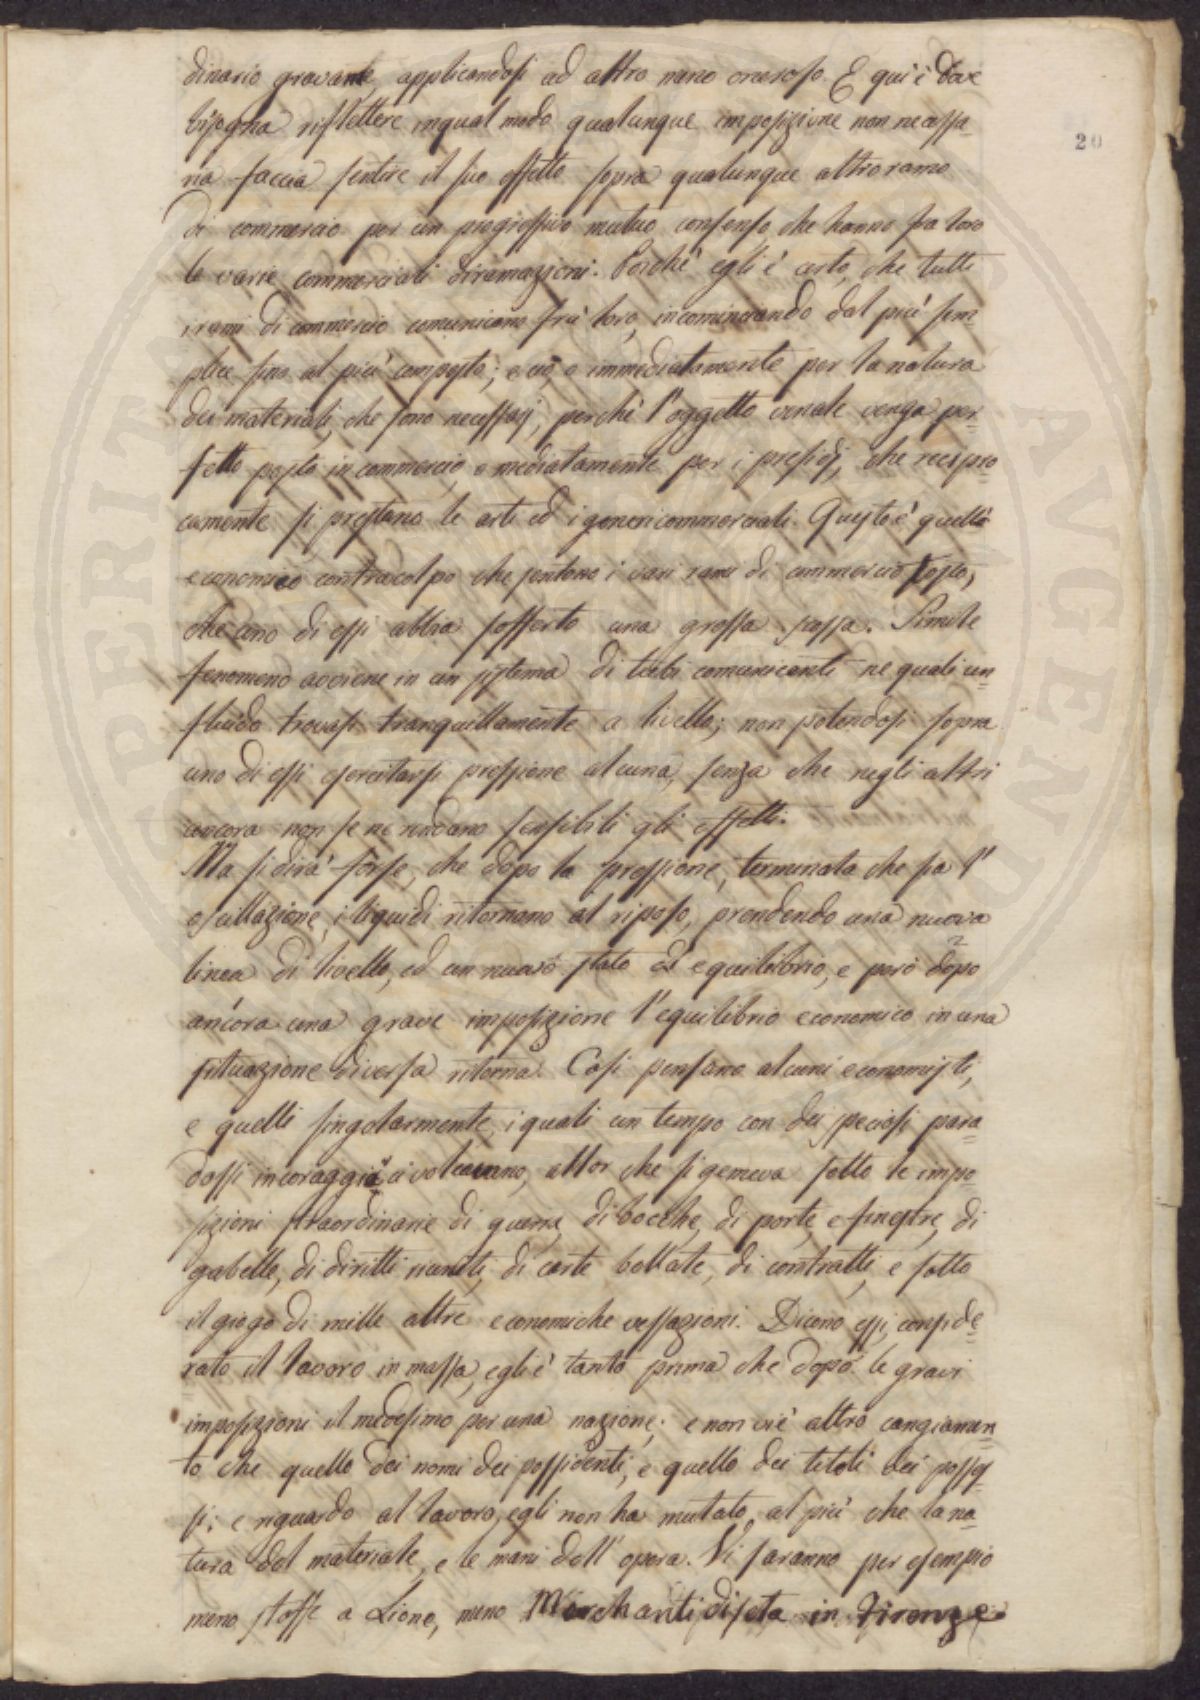 dinario gravame, applicandosi ad altro meno oneroso. E qui è dove
bisogna riflettere in qual modo qualunque imposizione non necessa-
20
ria faccia sentire il suo effetto sopra qualunque altro ramo
di commercio per un progressivo mutuo consenso che hanno fra loro
le varie commerciali diramazioni. Poichè egli è certo, che tutti
i rami di commercio comunicano frà loro, incominciando dal più sem-
plice fino al più composto; e ciò, o immediatamente per la natura
dei materiali, che sono necessarj, perchè l'oggetto venale venga per-
fetto posto in commercio, o mediatamente per i presidj, che recipro
camente si prestano le arti ed i generi commerciali. Questo è quello
economico contracolpo che sentono i vari rami di commercio tosto,
che uno di essi abbia sofferto una grossa tassa. Simile
fenomeno avviene in un sistema di tubi comunicanti ne quali un
fluido trovasi tranquillamente a livello; non potendosi sopra
uno di essi esercitarsi pressione alcuna, senza che negli altri
ancora non se ne rendano sensibili gli effetti.
Ma si dirà forse, che dopo la pressione, terminata che sia l'
oscillazione, i liquidi ritornano al riposo, prendendo una nuova
linea di livello, ed un nuovo stato di equilibrio, e però dopo
ancora una grave imposizione l'equilibrio economico in una
situazione diversa ritorna. Così pensano alcuni economisti,
e quelli singolarmente, i quali un tempo con dei speciosi para-
dossi incoraggiar ci volevano, allor che si gemeva sotto le impo-
sizioni straordinarie di guerra, di bocche, di porte, e finestre, di
gabelle, di diritti riuniti, di carte bollate, di contratti, e sotto
il giogo di mille altre economiche vessazioni. Dicono essi, conside-
rato il lavoro in massa, egli è tanto prima che dopo le gravi
imposizioni il medesimo per una nazione; e non vi è altro cangiamen
to che quello dei nomi dei possidenti, e quello dei titoli dei posses
si; e riguardo al lavoro, egli non ha mutato, al più che la na-
tura del materiale, e le mani dell'opera. Vi saranno per esempio
meno stoffe a Lione, meno Merchanti di seta in Firenze